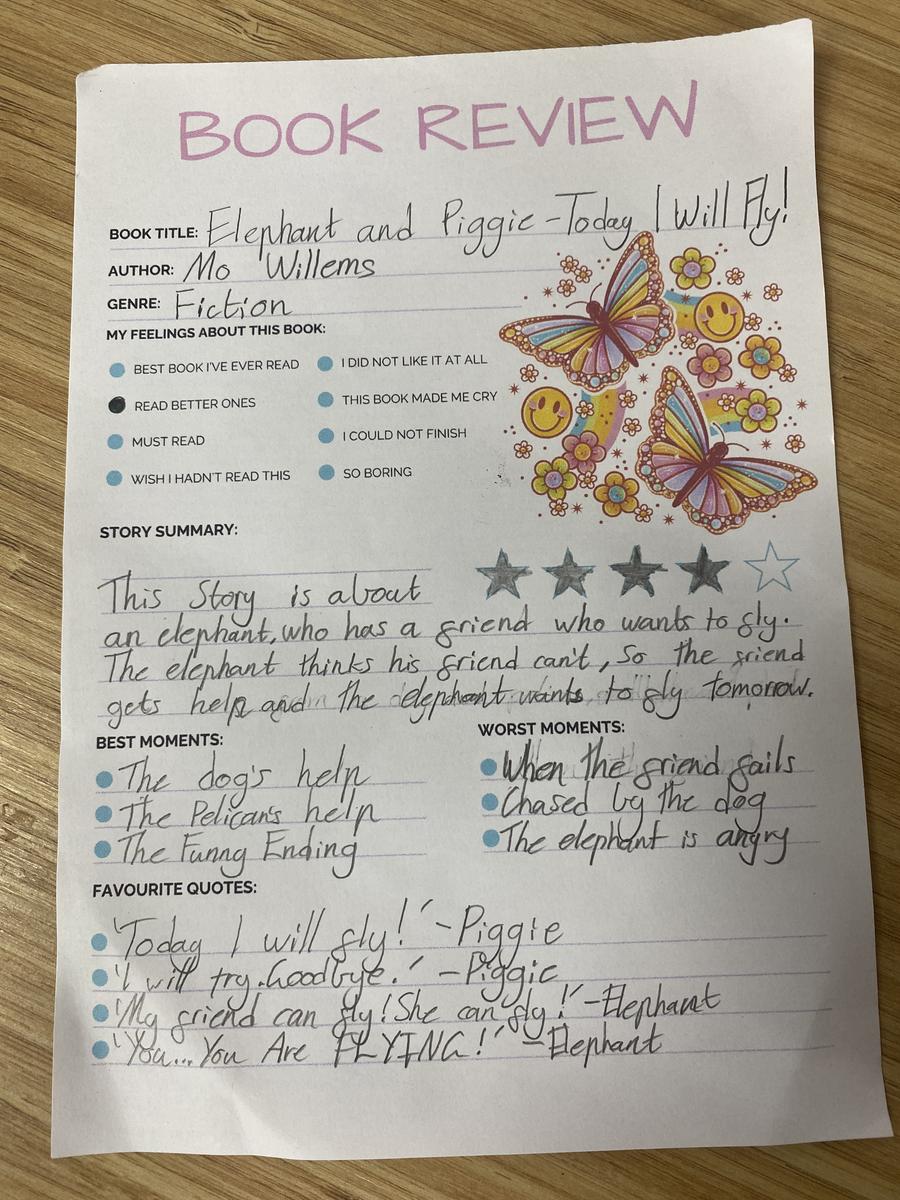 BOOK REVIEW
BOOK TITLE: Elephant and Piggie - Today I Will Fly!
AUTHOR: Mo Willems
GENRE: Fiction
MY FEELINGS ABOUT THIS BOOK:
BEST BOOK I'VE EVER READ
I DID NOT LIKE IT AT ALL
READ BETTER ONES
THIS BOOK MADE ME CRY
MUST READ
I COULD NOT FINISH
WISH I HADN'T READ THIS
SO BORING
STORY SUMMARY:
This Story is about
an elephant, who has a friend who wants to fly.
The elephant thinks his friend can't, So the friend
gets help and the elephant wants to fly tomorrow.
BEST MOMENTS:
The dog's help
The Pelican's help
The Funny Ending
WORST MOMENTS:
When the friend fails
Chased by the dog
The elephant is angry
FAVOURITE QUOTES:
'Today I will fly!' - Piggie
'I will try. Goodbye.' - Piggie
'My friend can fly! She can fly!' - Elephant
'You... You Are FLYING!' - Elephant